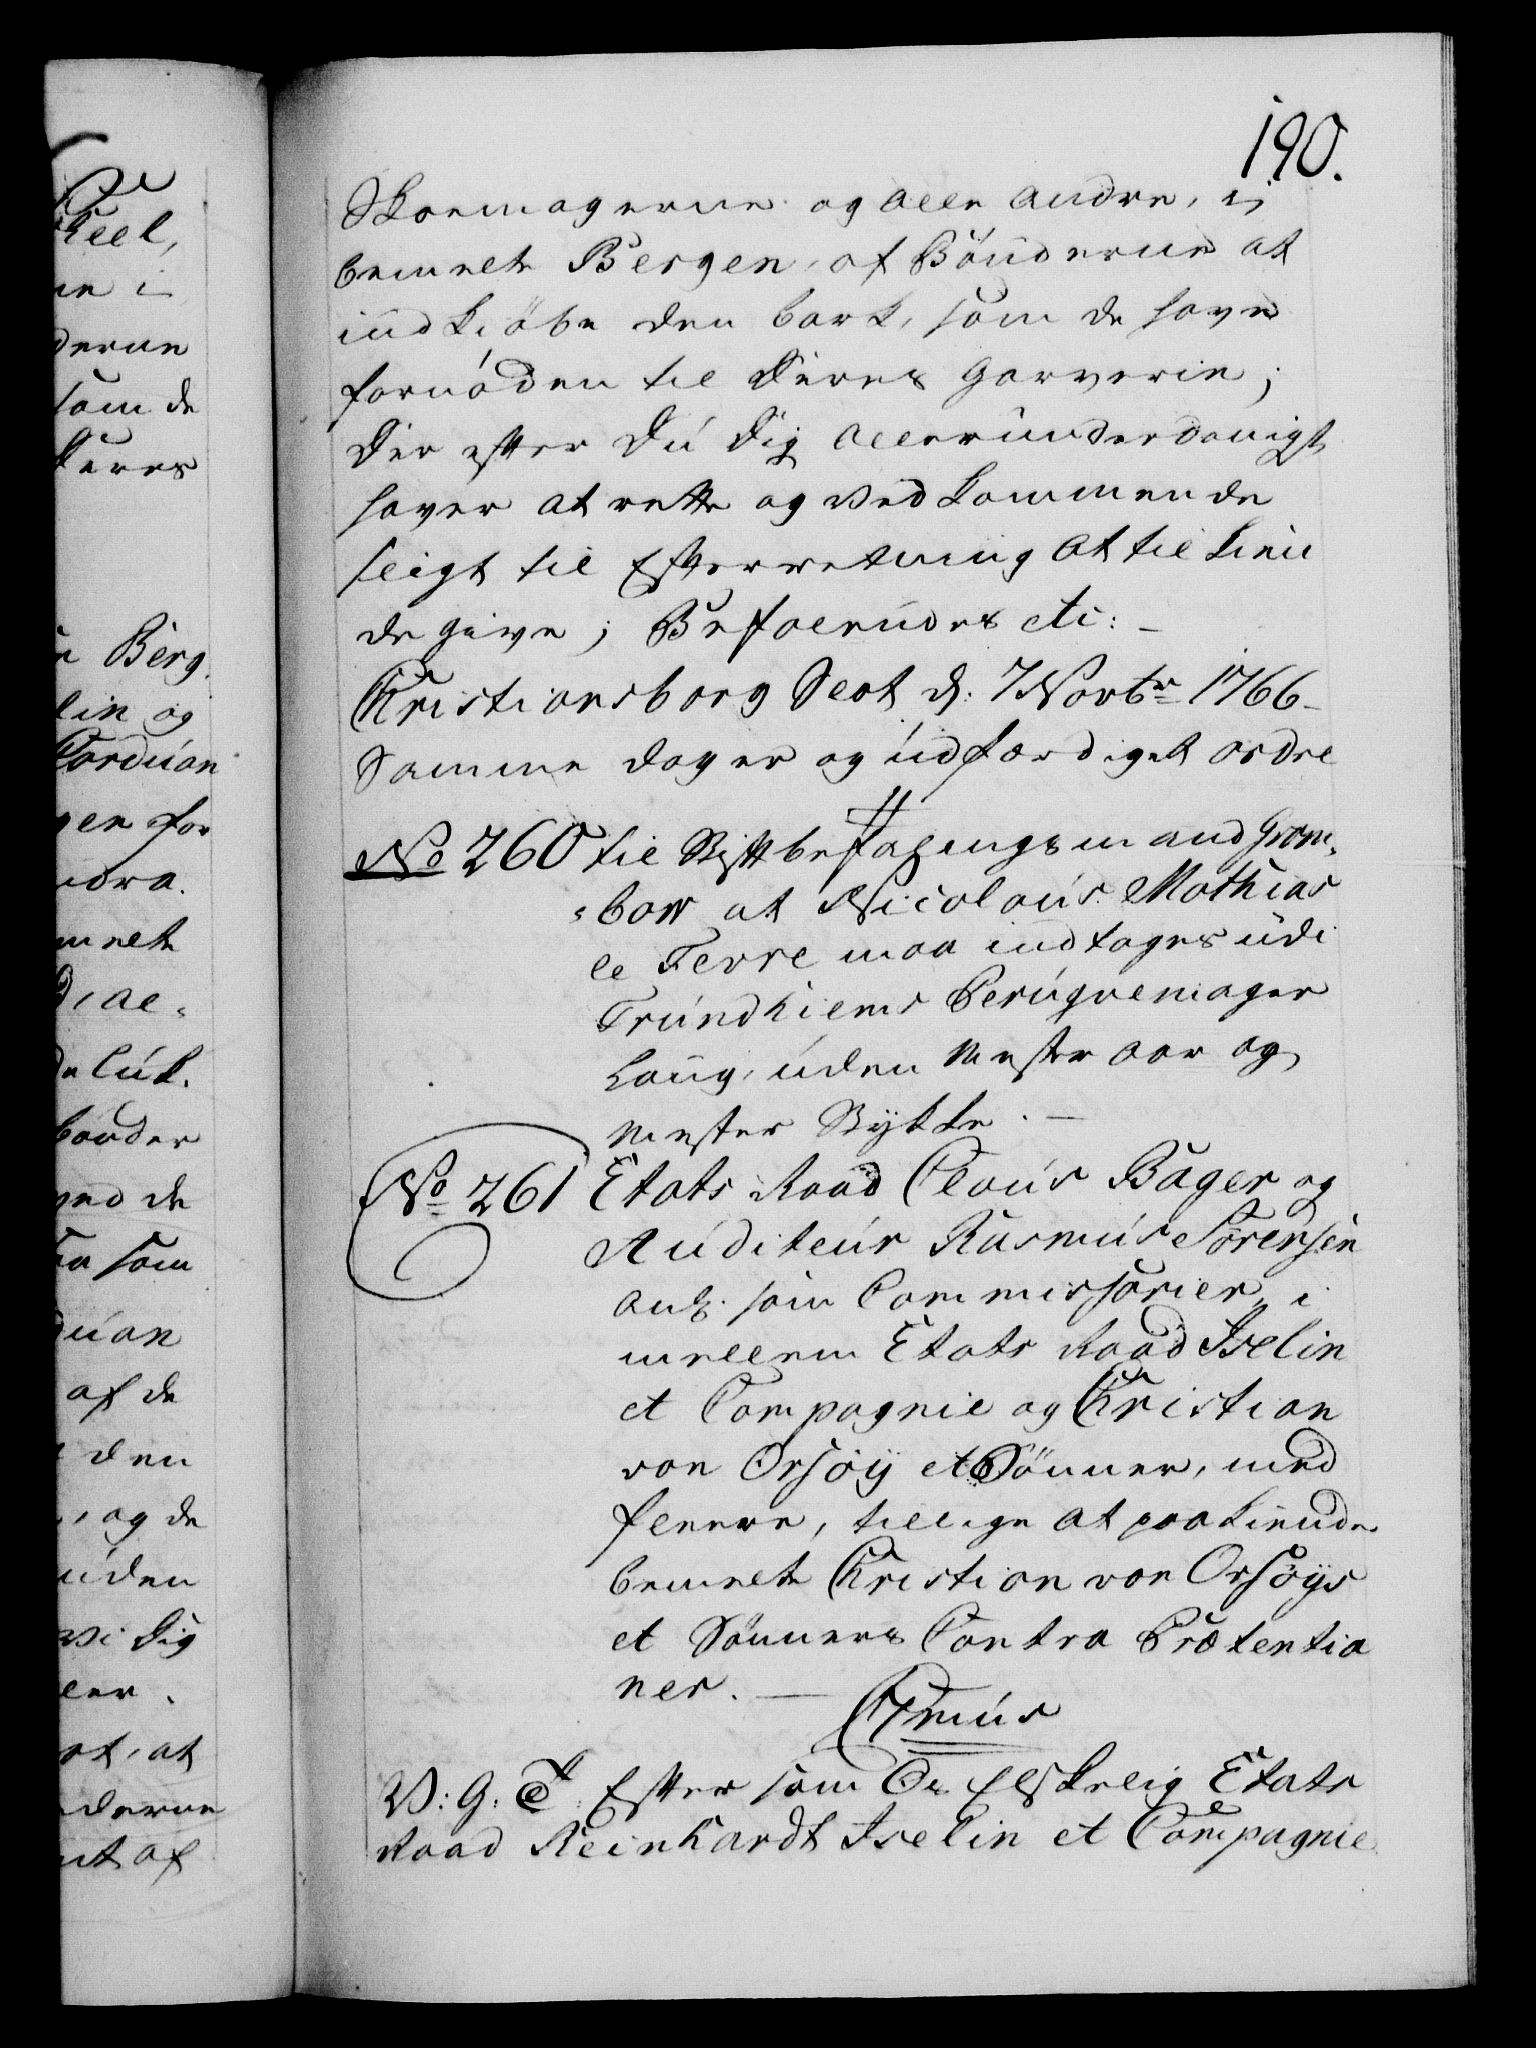 190.
Skoemagerne og alle andre, i
bemelte Bergen, af Bönderne at
indkiöbe den bark, som de have
fornöden til deres Garverie;
Der efter du dig allerunderdanigst
haver at rette og vedkommende
sligt til Efterretning at tilkien
de give; Befalendes etc: –
Christiansborg Slot d: 7 Novbr 1766 –
Samme dag er og udfærdiget ordre
No 260 til Stiftbefalingsmand Gram,
=bow at Nicolaus Mathias
le Fevre maa indtages udi
Trundhiems Peruqvemager
Laug, uden Mester aar og
Mester Stykke. –
No 261 Etats Raad Claus Bager og
Auditeur Rasmus Sörensen
anb. som Commissarier, i
mellem Etats Raad Iselin
et Compagnie og Christian
von Orsöÿ et Sönner, med
fleere, tillige at paakiende
bemelte Christian von Orsöÿs
et Sönners Contra Prætentio
ner. –
V: G: T: Eftersom Os Elskelig Etats
Raad Reinhardt Iselin et Compagnie
keel,
ne i
derne
som de
deres
Berg.
lin og
Corduan
gen for
ndra.
melte
bönder
ved de
som
duan
af de
den
, og de
uden
vi dig
ler.
ot, at
derne
af